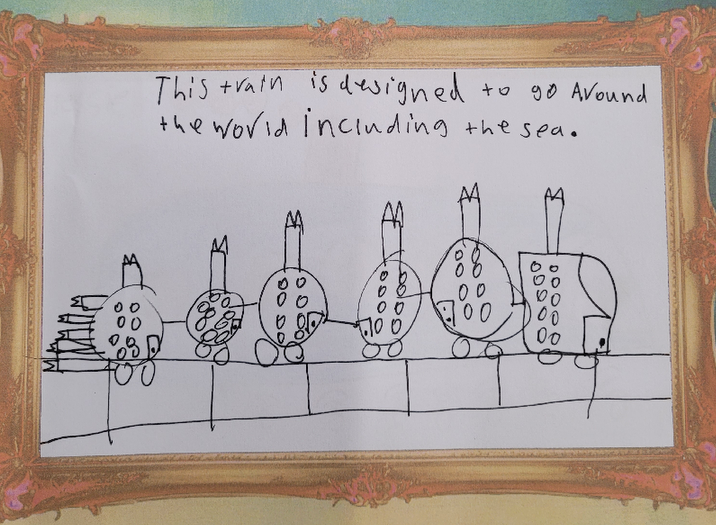 This train is designed to go Around
the world including the sea.